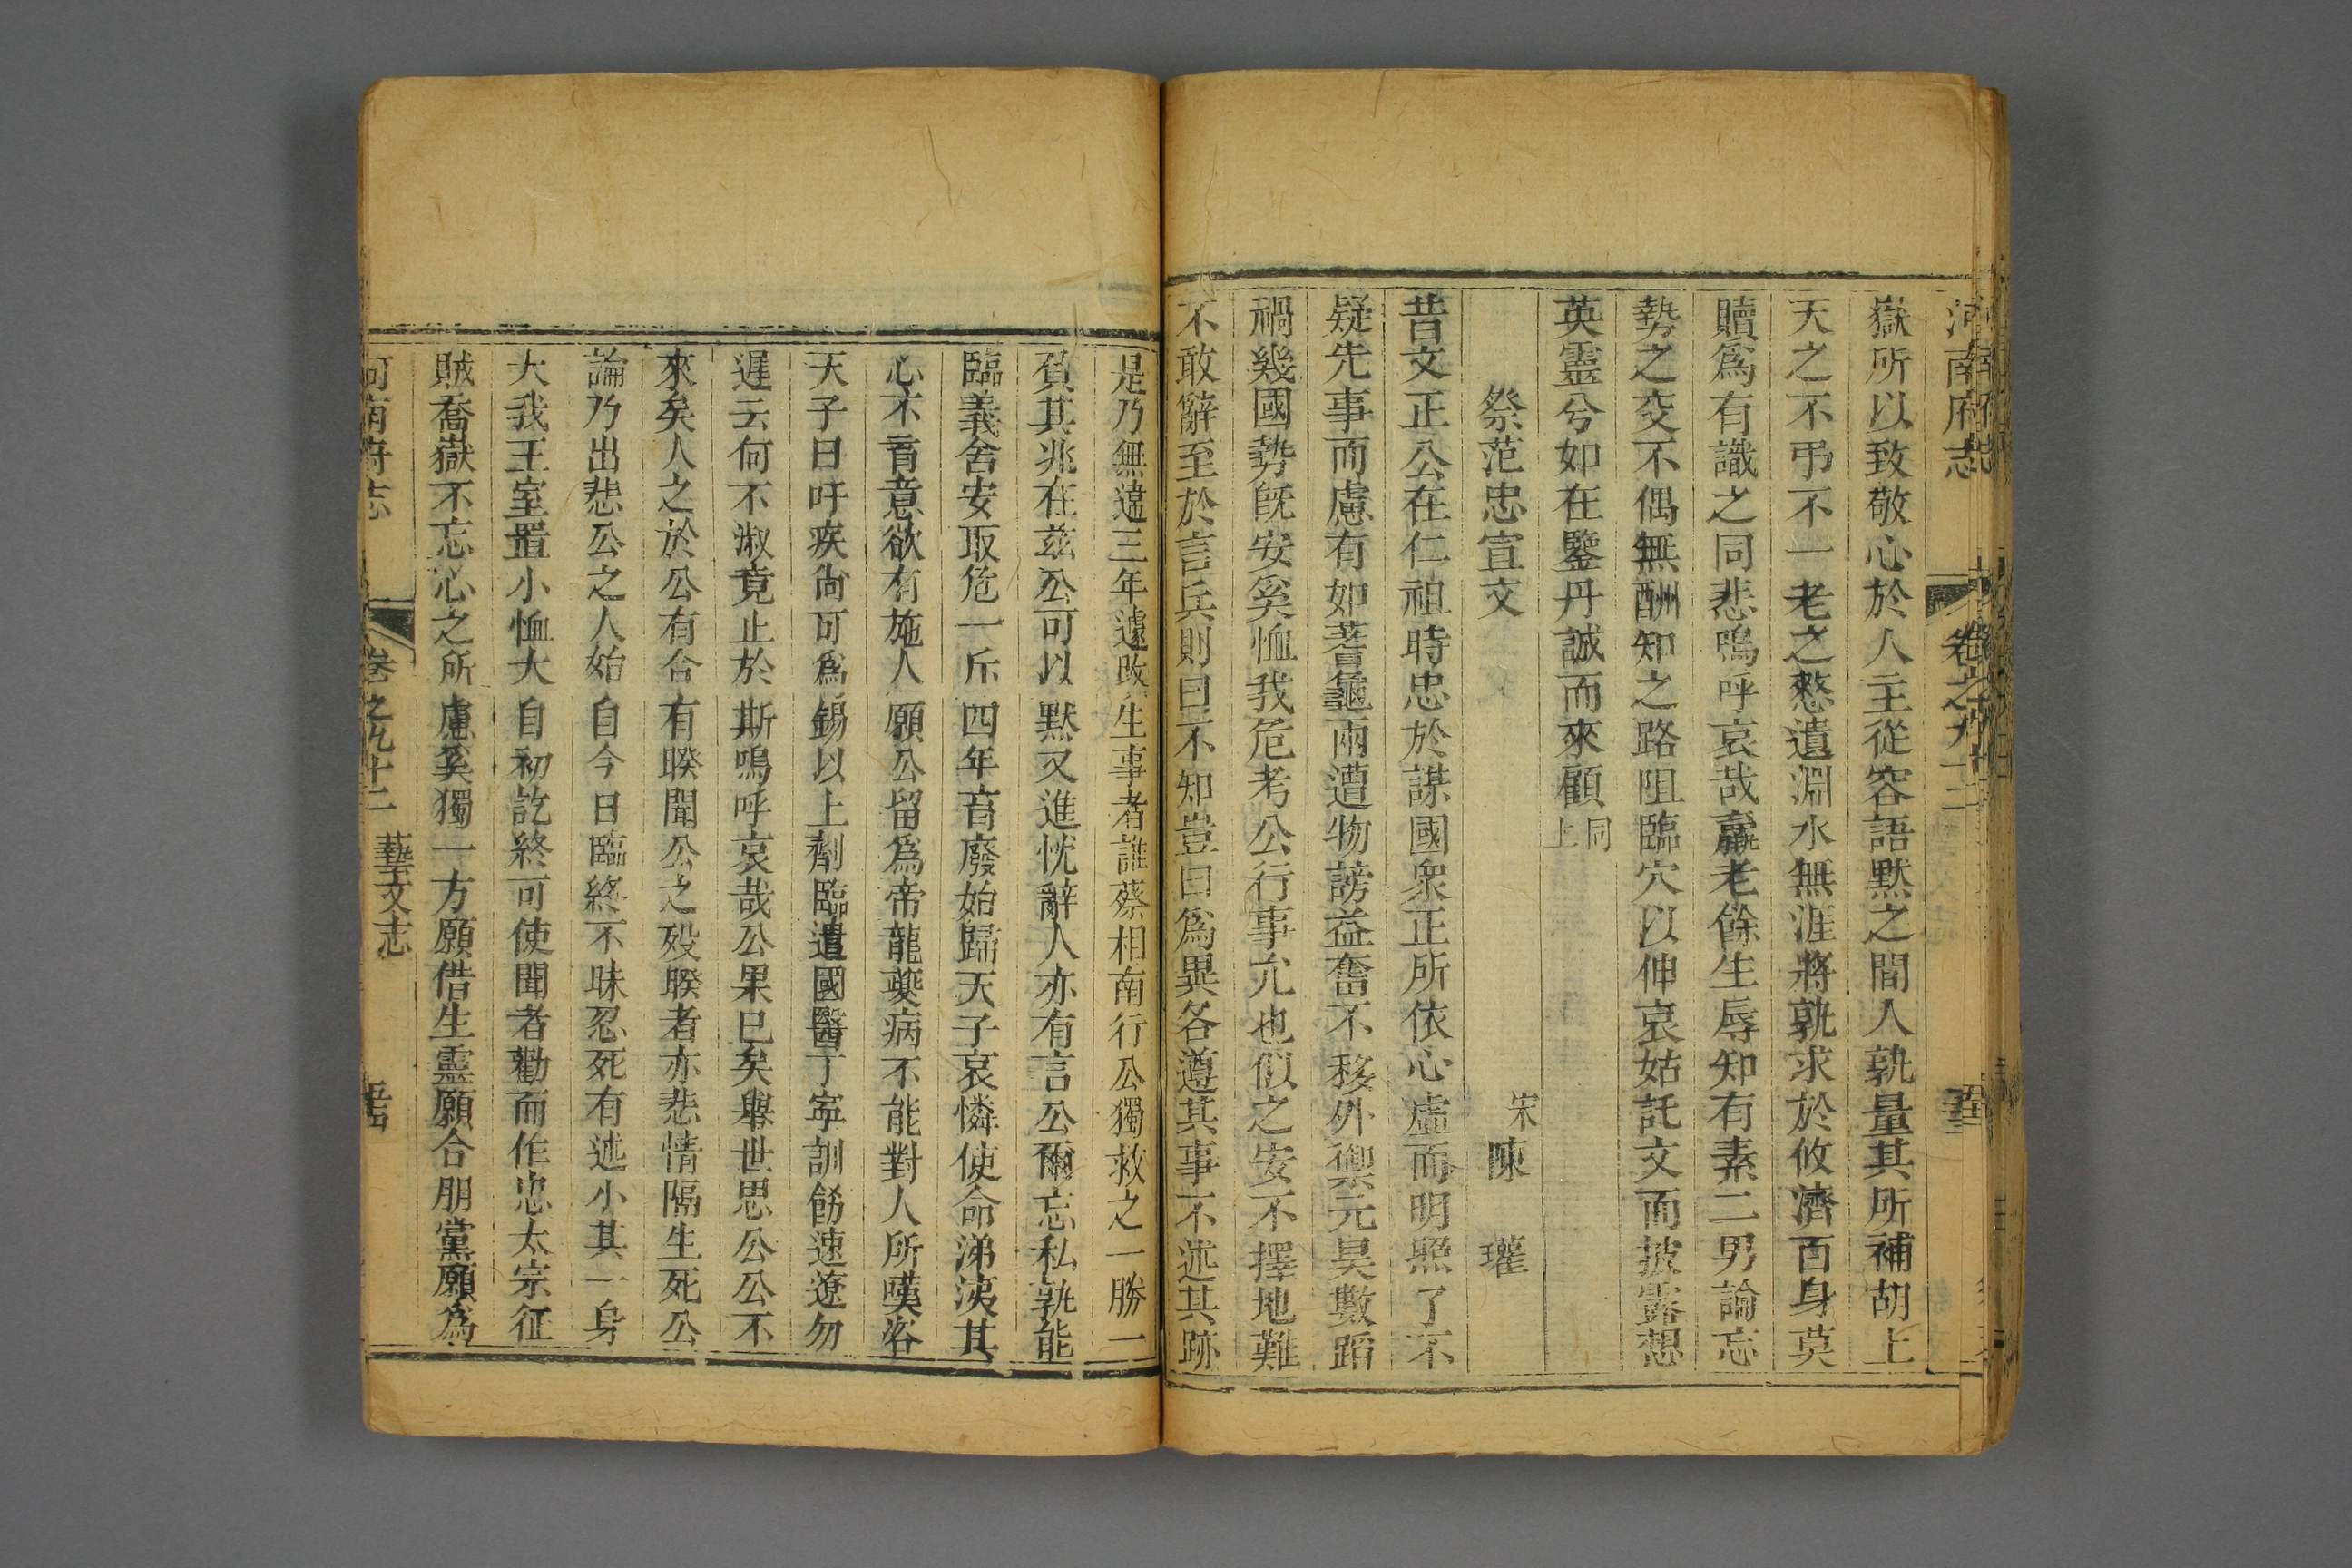 河南府志 卷之九十二
嶽所以致敬心於人主從容語默之間人孰量其所補胡上
天之不弔不一老之憗遺淵水無涯將孰求於攸濟百身莫
贖爲有識之同悲嗚呼哀哉 老餘生辱知有素二男論忘
勢之交不偶無酬知之路阻臨穴以伸哀姑託文而披露想
英靈兮如在鑒丹誠而來顧同上
祭范忠宣文 宋陳 瓘
昔文正公在仁祖時忠於謀國衆正所依心虛而明照了不
疑先事而慮有如蓍龜兩遭物謗益奮不移外禦元昊數蹈
禍幾國勢旣安奚恤我危考公行事允也似之安不擇地難
不敢辭至於言兵則曰不知豈曰爲異各遵其事不述其跡
是乃無違三年遽改生事者誰蔡相南行公獨救之一勝一
負其兆在兹公可以默又進忱辭人亦有言公爾忘私孰能
臨義舍安取危一斥四年盲廢始歸天子哀憐使命涕洟其
心不盲意欲有施人願公留爲帝龍夔病不能對人所嘆咨
天子曰吁疾尙可爲錫以上劑臨遣國醫丁寧訓飭速遼勿
遲云何不淑竟止於斯嗚呼哀哉公果已矣舉世思公公不
來矣人之於公有合有睽聞公之歿睽者亦悲情隔生死公
論乃出悲公之人始自今日臨終不昧忍死有述小其一身
大我王室置小恤大自初訖終可使聞者勸而作忠太宗征
賊喬嶽不忘心之所慮奚獨一方願借生靈願合朋黨願爲
河南府志 卷之九十二 藝文志